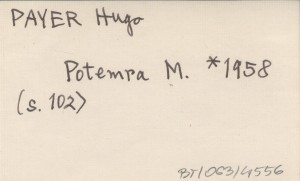 PAYER Hugo
Potempa M. *1958
(s. 102)
BT/063/4556